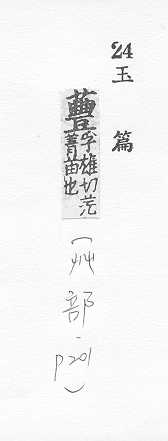 24
玉篇
蘴
孚雄切
菁苗也
（艸部·p201）